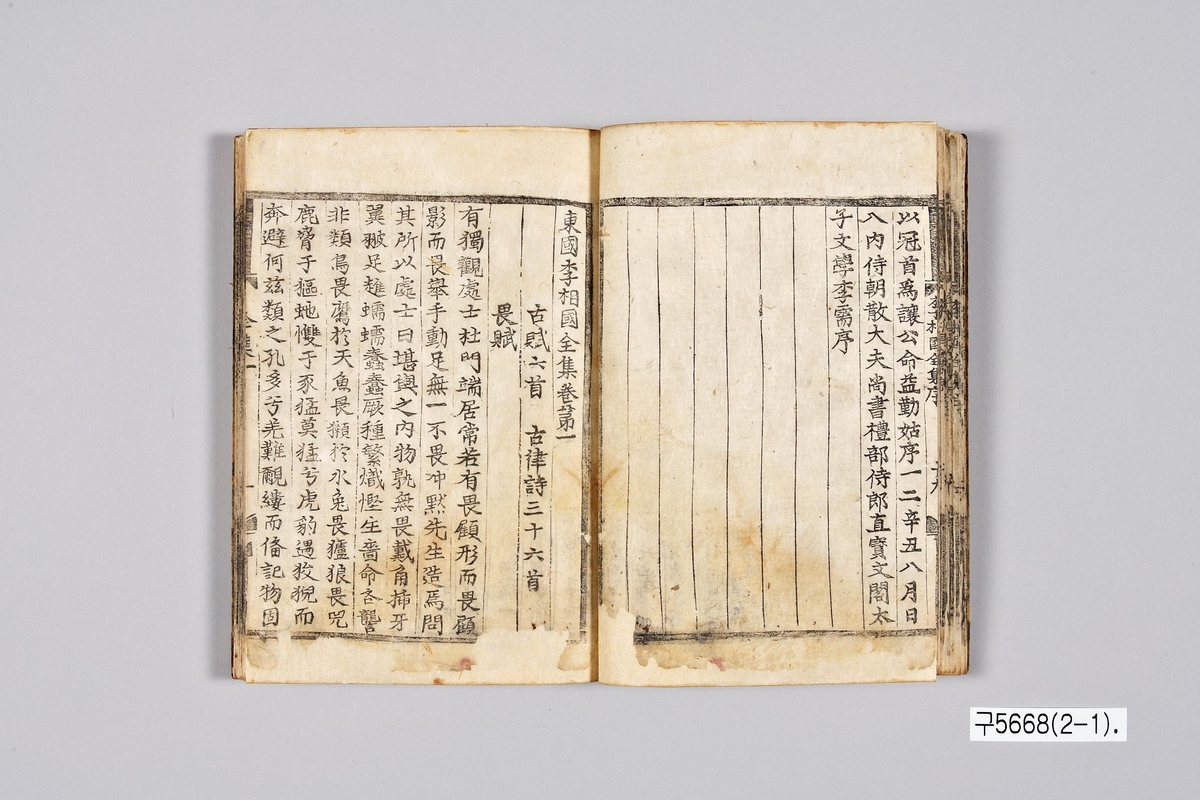 以冠首爲讓公命益勤姑序一二辛丑八月日
入內侍朝散大夫尚書禮部侍郎直寶文閣太
子文學李需序
東國李相國全集卷第一
古賦六首 古律詩三十六首
畏賦
有獨觀處士杜門端居常若有畏顧形而畏顧
影而畏擧手動足無一不畏冲默先生造焉問
其所以處士曰堪輿之內物孰無畏戴角揷牙
翼翍足趡蠕蠕蠢蠢厥種繁熾慳生嗇命各讋
非類鳥畏鷹於天魚畏獺於水兔畏獹狼畏兕
鹿脅于貙虵慴于豕猛莫猛兮虎豹遇狻猊而
奔避何玆類之孔多兮羌難覼縷而俻記物固
구5668(2-1).